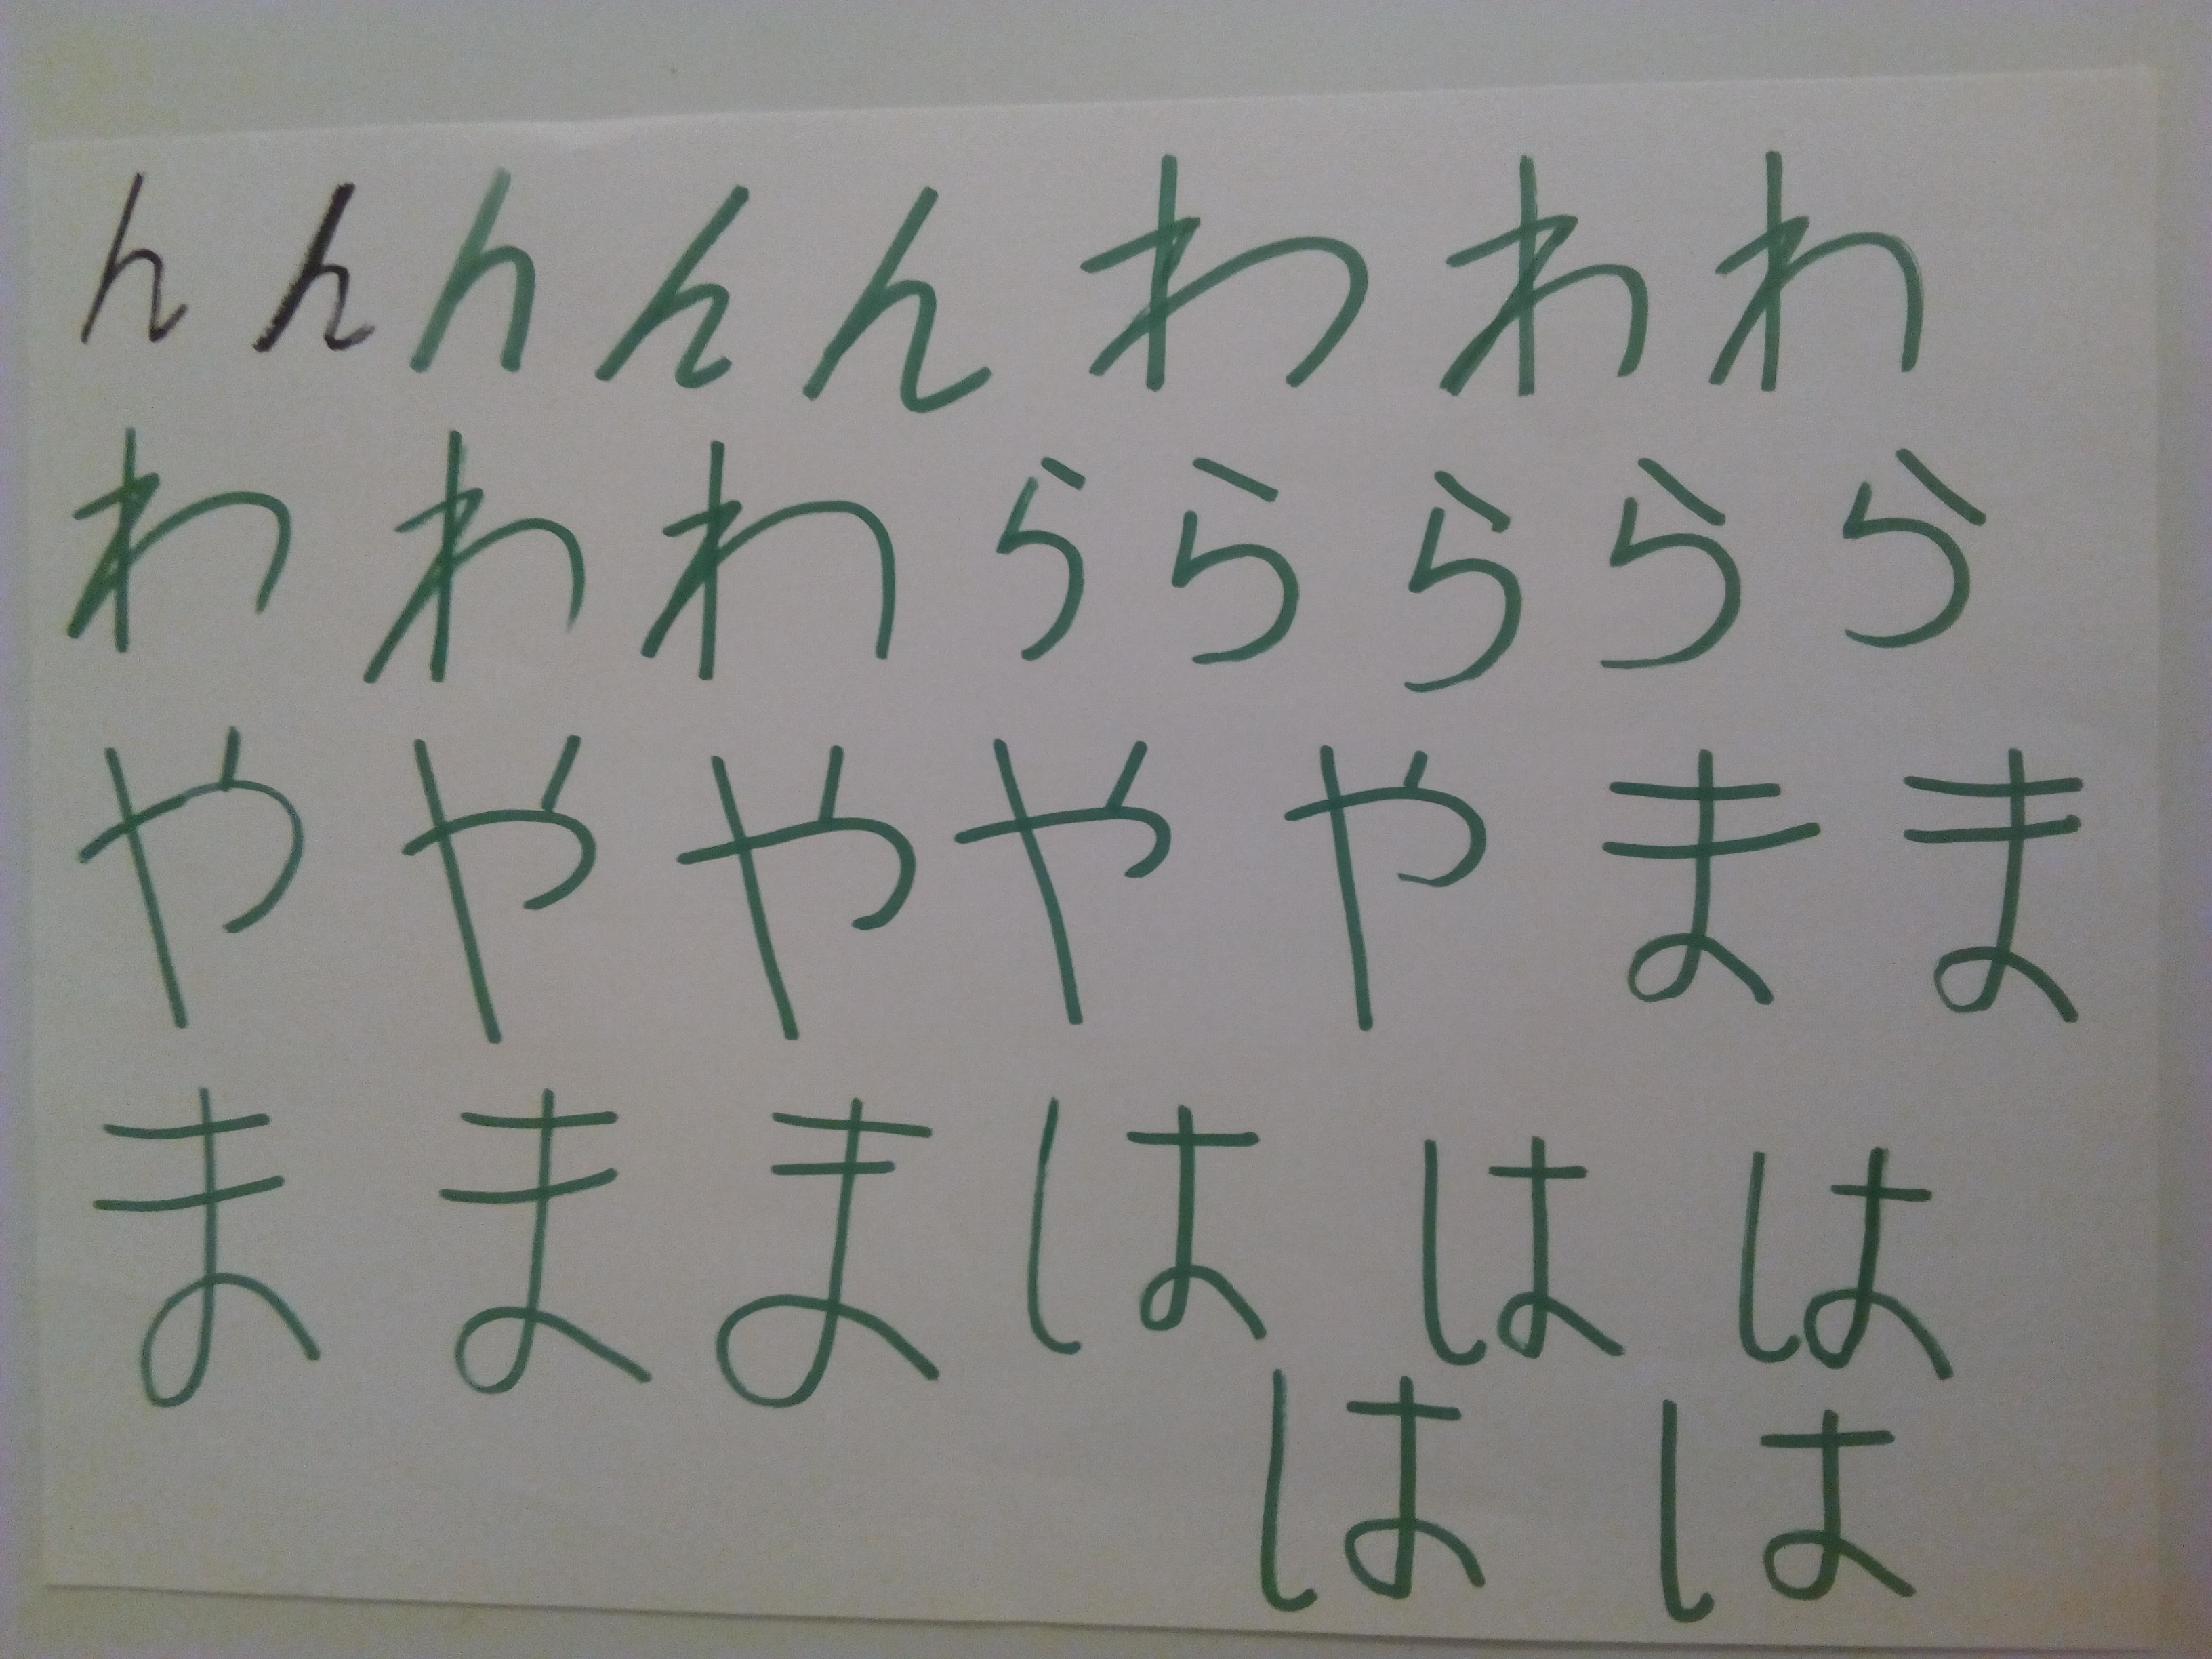 んんんんんわわわ
わわわららららら
やややややまま
まままははは
はは